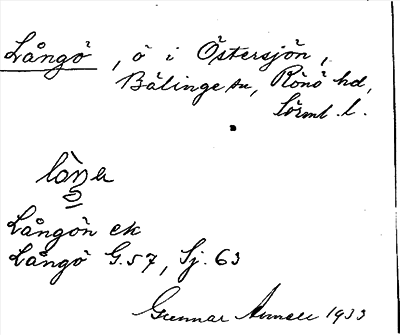 Långö, ö i Östersjön,
Bälinge sn, Rönö hd,
Sörml. l.
Långön ek
Långö G.57, Sj. 63
Gunnar 1933